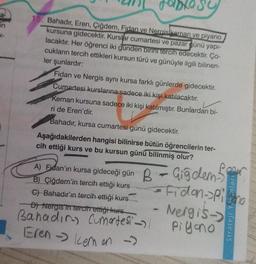 tablosu
10. Bahadır, Eren, Çiğdem, Fidan ve Nergis keman ve piyano
kursuna gidecektir. Kurslar cumartesi ve pazar günü yapı-
lacaktır. Her öğrenci iki günden birini tercih edecektir. Ço-
cukların tercih ettikleri kursun türü ve günüyle ilgili bilinen-
ler şunlardır:
Fidan ve Nergis aynı kursa farklı günlerde gidecektir.
Cumartesi kurslarına sadece iki kişi katılacaktır.
Keman kursuna sadece iki kişi katılmıştır. Bunlardan bi-
ri de Eren'dir.
Bahadır, kursa cumartesi günü gidecektir.
Aşağıdakilerden hangisi bilinirse bütün öğrencilerin ter-
cih ettiği kurs ve bu kursun günü bilinmiş olur?
A) Fidan'ın kursa gideceği gün
B) Çiğdem'in tercih ettiği kurs
C) Bahadır'ın tercih ettiği kurs
D) Nergis'in tercih ettiği kurs
B - Çiğdem
Fidan → Piyano
Nergis →
Piyano
Bahadır → Cumartesi →
Eren → Keman →
Strateji Yayınları